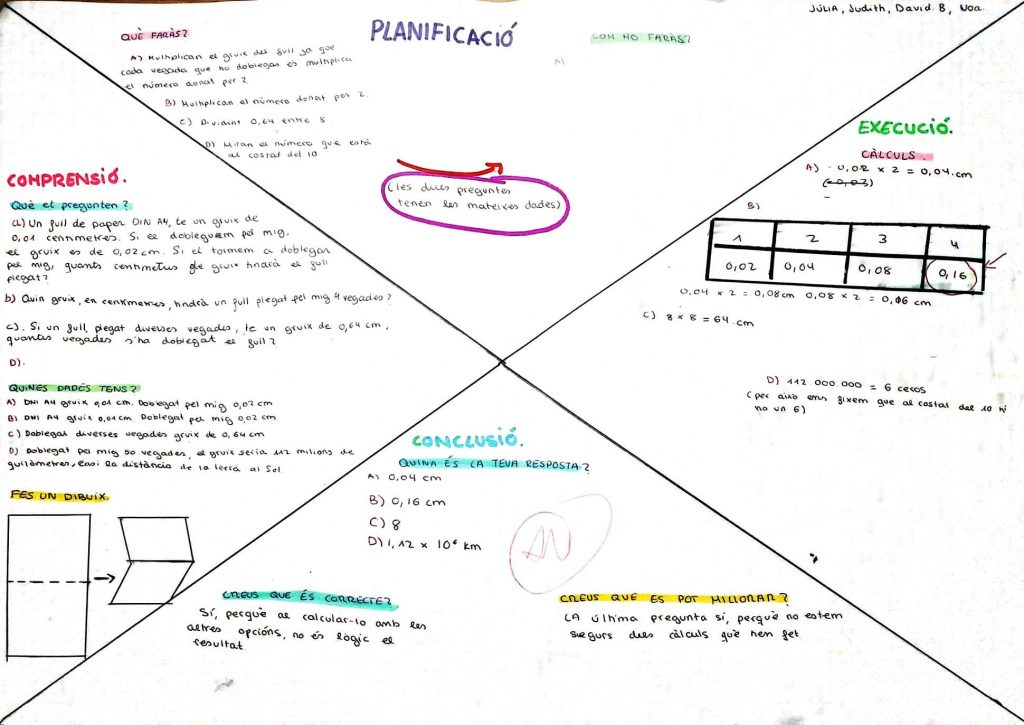 JÚLIA, Judith, David. B, Noa.
PLANIFICACIÓ
QUÈ FARÀS?
A) Multiplican el gruix del full ja que
cada vegada que ho doblegas es multiplica
el número donat per 2.
B) Multiplican el número donat per 2.
C) Dividint 0,64 entre 8
D) Miran el número que està
al costat del 10
COM HO FARAS?
A)
(les dues preguntes
tenen les mateixes dades)
COMPRENSIÓ.
Què et pregunten?
a) Un full de paper DIN A4, te un gruix de
0,01 centímetres. Si el dobleguem pel mig,
el gruix es de 0,02 cm. Si el tornem a doblegar
pel mig, quants centímetres de gruix tindrà el full
plegat?
b) Quin gruix, en centímetres, tindrà un full plegat pel mig 4 vegades?
c). Si un full, plegat diverses vegades, te un gruix de 0,64 cm,
quantes vegades s'ha doblegat el full?
D).
QUINES DADES TENS?
A) DNI A4 gruix 0,01 cm. Doblegat pel mig 0,02 cm
B) DNI A4 gruix 0,01 cm. Doblegat pel mig 0,02 cm.
C) Doblegat diverses vegades gruix de 0,64 cm
D) Doblegat pel mig 50 vegades, el gruix seria 112 milions de
quilòmetres, casi la distància de la terra al Sol
FES UN DIBUIX.
EXECUCIÓ.
CÀLCULS.
A) - 0,02 x 2 = 0,04. cm
B)
1 2 3 4
0,02 0,04 0,08 0,16
0,04 x 2 = 0,08cm 0,08 x 2 = 0,06 cm
C) 8 x 8 = 64. cm
D) 112 000.000 = 6 ceros
(per això ens fixem que al costat del 10 hi
ha un 6)
CONCLUSIÓ.
QUINA ÉS LA TEVA RESPOSTA?
A) 0,04 cm
B) 0,16 cm
C) 8
D) 1,12 x 10⁶ km
AN
CREUS QUE ÉS CORRECTE?
Sí, perquè al calcular-lo amb les
altres opcións, no és lògic el
resultat.
CREUS QUE ES POT MILLORAR?
LA última pregunta sí, perquè no estem
segurs dels càlculs què hem fet